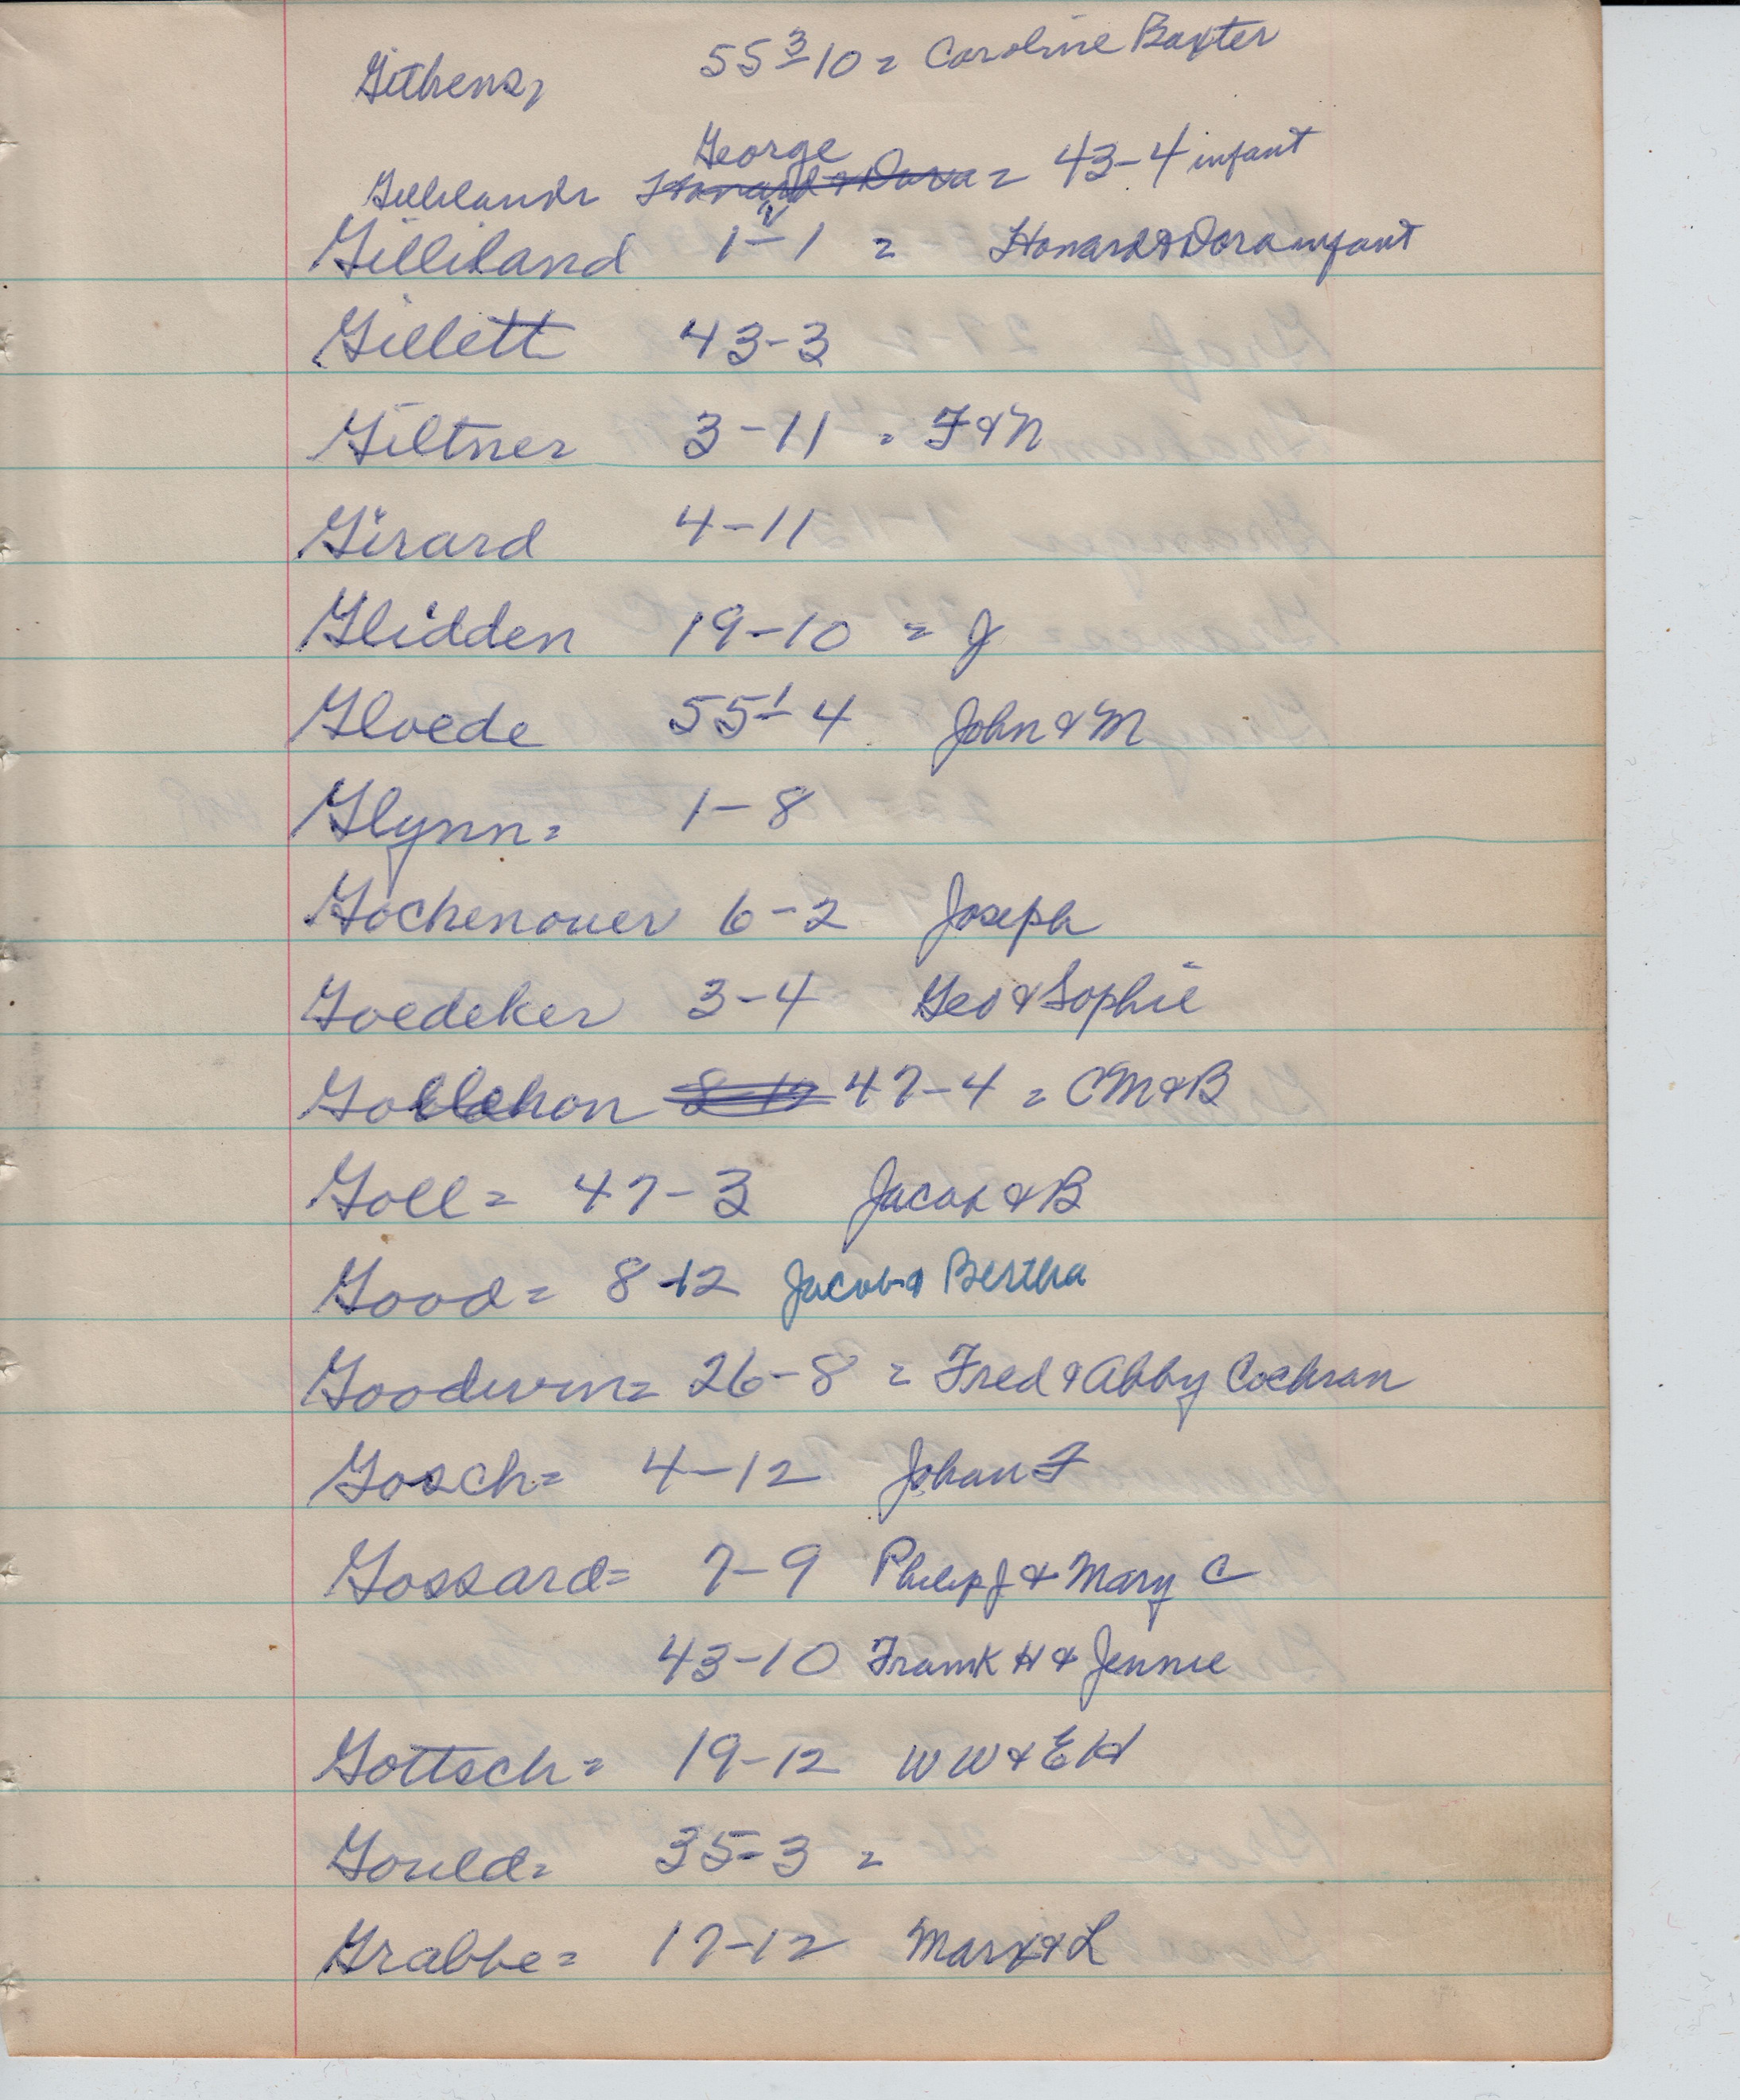 Githens, 55 3/10 = Caroline Baxter
George
Gilliland Howard & Dora = 43-4 infant
Gilliland 1-1 = Howard & Dora infant
Gillett 43-3
Giltner 3-11 = F & N
Girard 4-11
Glidden 19-10 = J
Gloede 55 1/- 4 John & M
Glynn = 1-8
Gochenouer 6-2 Joseph
Goedeker 3-4 Geo & Sophie
Gollehon 8-12 47-4 = CM & B
Goll = 47-3 Jacob & B
Good = 8-12 Jacob & Bertha
Goodwin = 26-8 = Fred & Abby Cochran
Gosch = 4-12 Johan F
Gossard = 7-9 Philip J & Mary C
43-10 Frank H & Jennie
Gottsch = 19-12 W W & E H
Gould = 35-3 =
Grabbe = 17-12 Marx & L